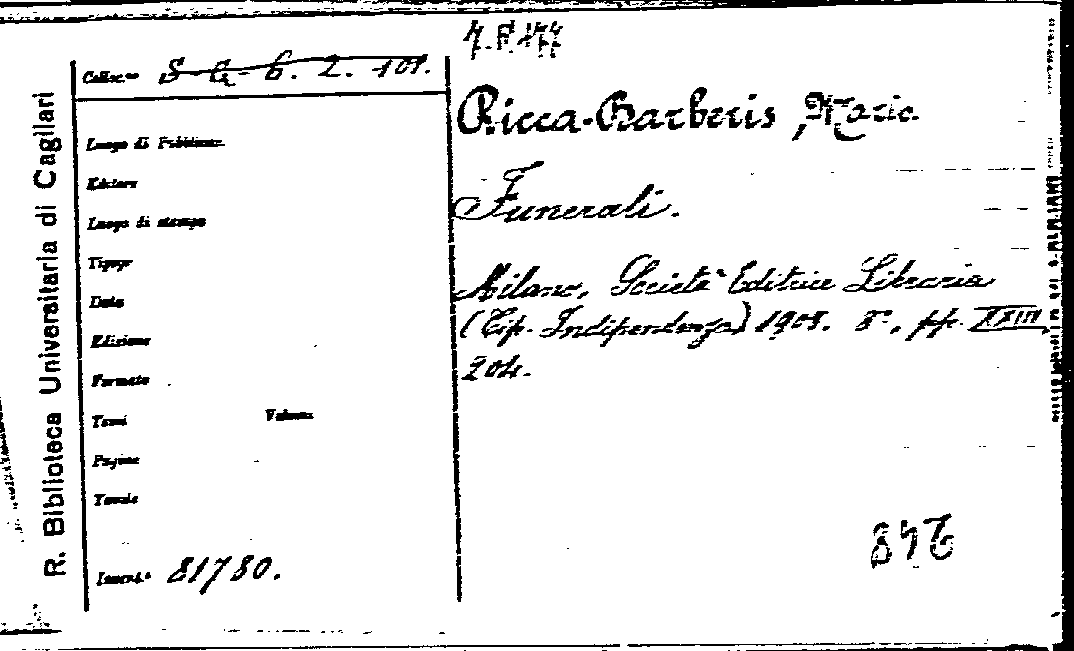 R. Biblioteca Universitaria di Cagliari
Colloc.ne S-G-6. 2. 101.
Luogo di Pubblicaz.
Editore
Luogo di stampa
Tipogr.
Data
Edizione
Formato
Tomi Volumi
Pagine
Tavole
Invent.º 81780.
Ricca-Barberis, Mario.
Funerali.
Milano, Società Editrice Libraria
(Tip. Indipendenza) 1908. 8º, pp. XXIII,
204.